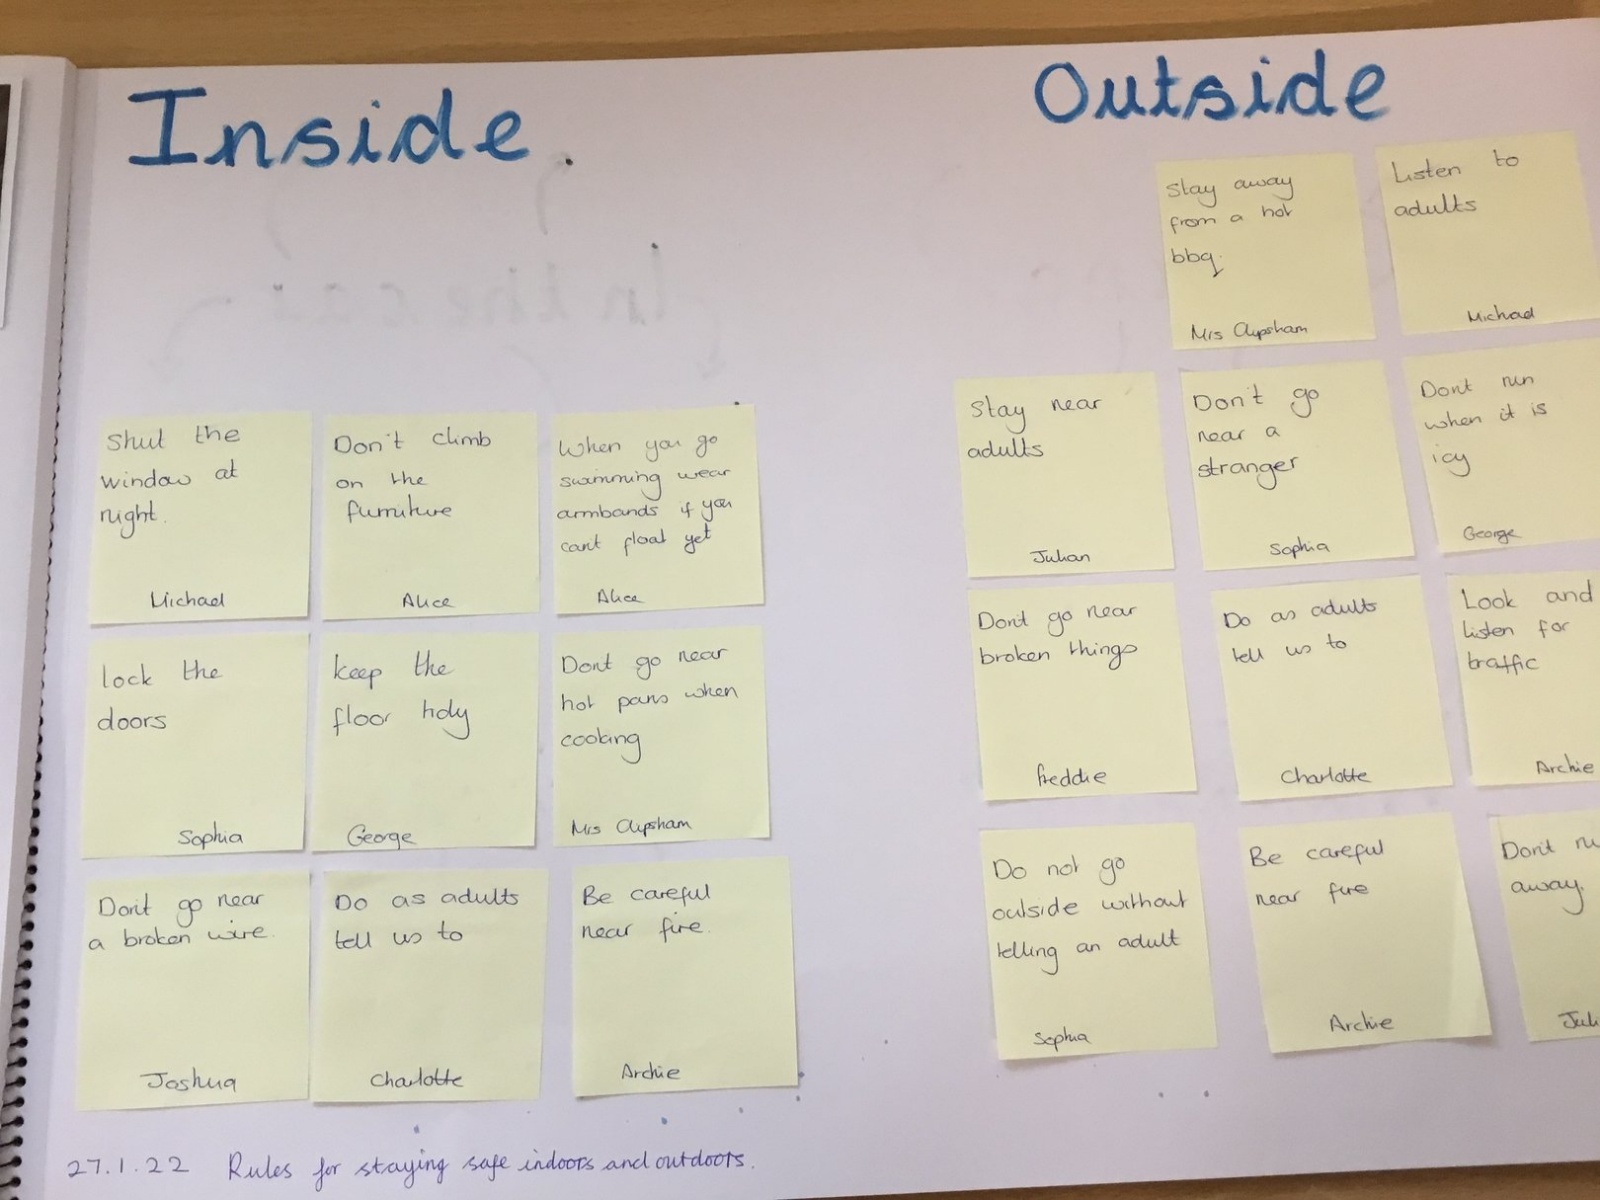 Inside.
Outside
Stay away
from a hot
bbq.
Mrs Clipsham
Listen to
adults
Michael
Shut the
window at
night.
Michael
Don't climb
on the
furniture
Alice
When you go
swimming wear
armbands if you
can't float yet
Alice
Stay near
adults
Julian
Don't go
near a
stranger
Sophia
Dont run
when it is
icy
George
lock the
doors
Sophia
keep the
floor tidy
George
Dont go near
hot pans when
cooking
Mrs Clipsham
Dont go near
broken things
freddie
Do as adults
tell us to
Charlotte
Look and
listen for
traffic
Archie
Don't go near
a broken wire.
Joshua
Do as adults
tell us to
Charlotte
Be careful
near fire.
Archie
Do not go
outside without
telling an adult
Sophia
Be careful
near fire
Archie
Don't
away.
27.1.22 Rules for staying safe indoors and outdoors.